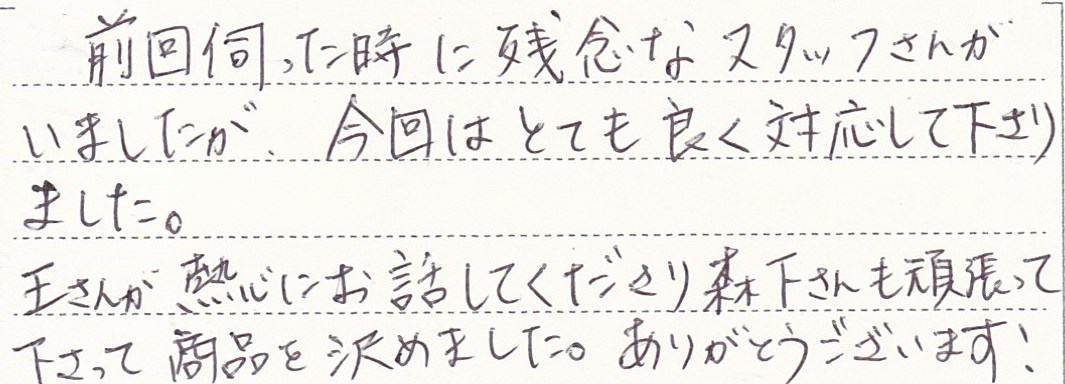 前回伺った時に残念なスタッフさんが
いましたが、今回はとても良く対応して下さり
ました。
王さんが熱心にお話してくださり森下さんも頑張って
下さって商品を決めました。ありがとうございます!